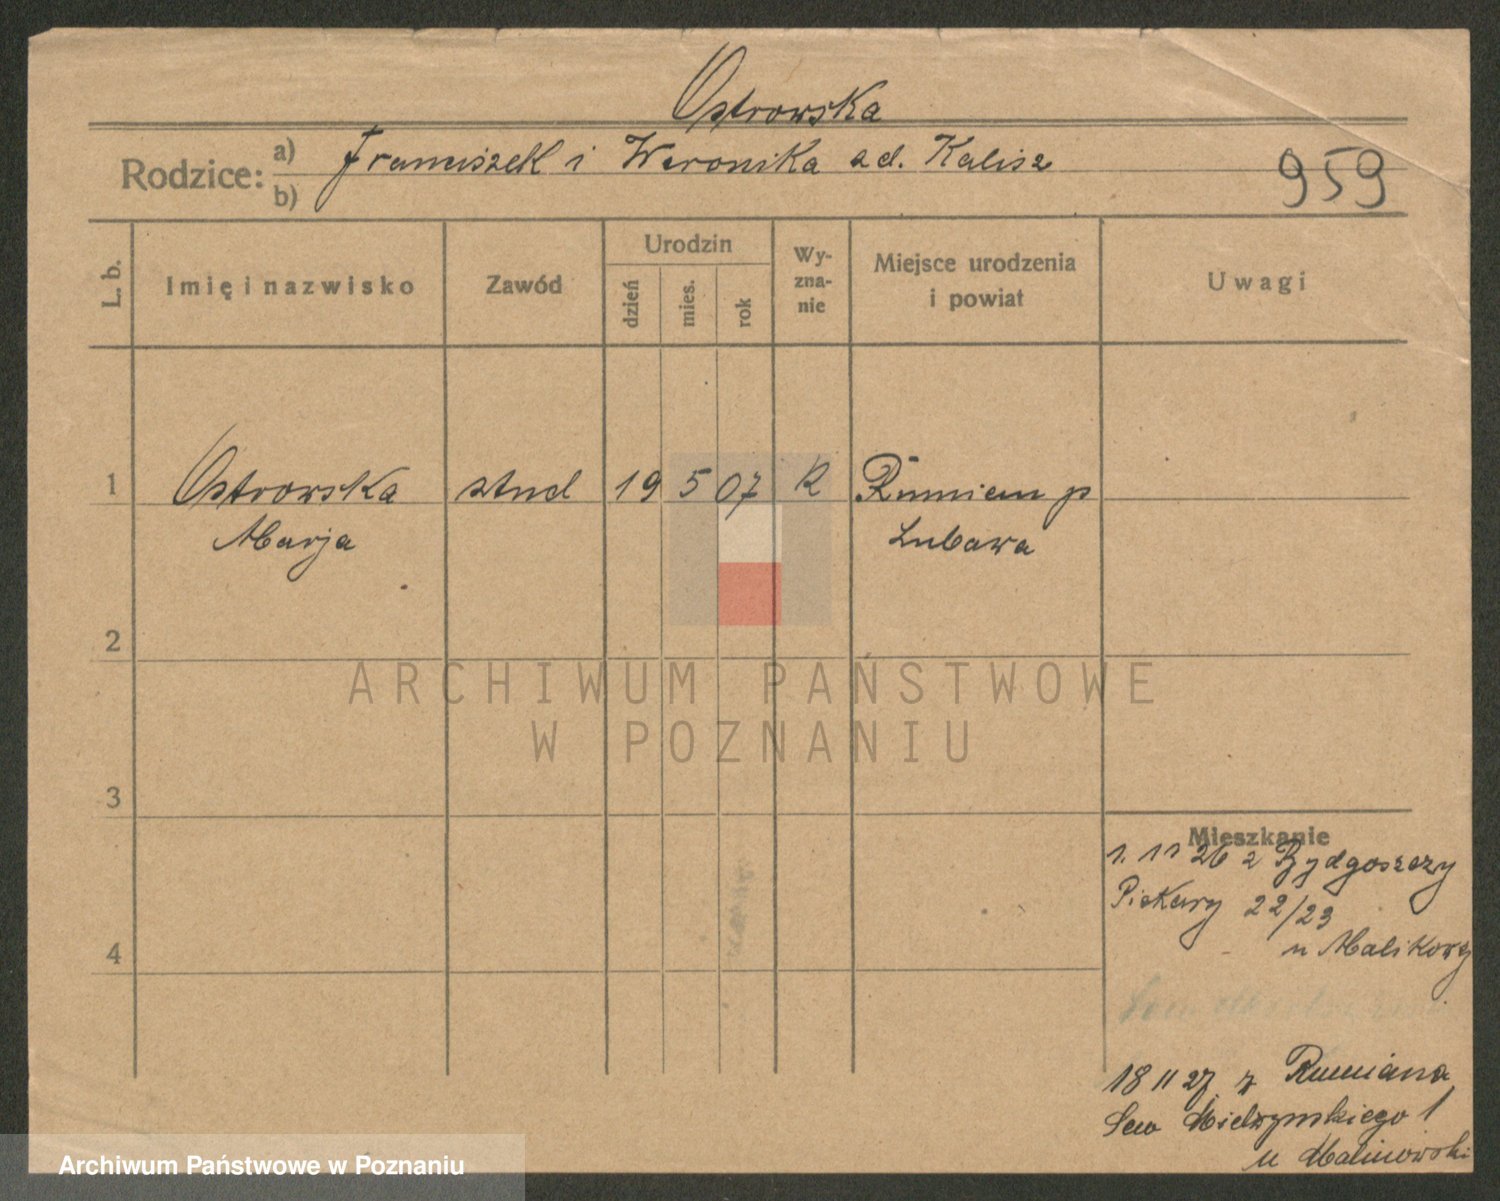 Ostrowska
Rodzice: a) Franciszek i Weronika zd. Kalisz
b)
959
L. b.
Imię i nazwisko
Zawód
Urodzin
dzień
mies.
rok
Wy-
zna-
nie
Miejsce urodzenia
i powiat
Uwagi
1 Ostrowska stud 19 5 07 R Rumian p
Marja Lubawa
2
3
4
ARCHIWUM PAŃSTWOWE
W POZNANIU
Mieszkanie
1. 11 26 z Bydgoszczy
Piekary 22/23
u Malikowej
18 11 27 z Rumiana
Sew Mielżyńskiego 1
u Malinowski
Archiwum Państwowe w Poznaniu